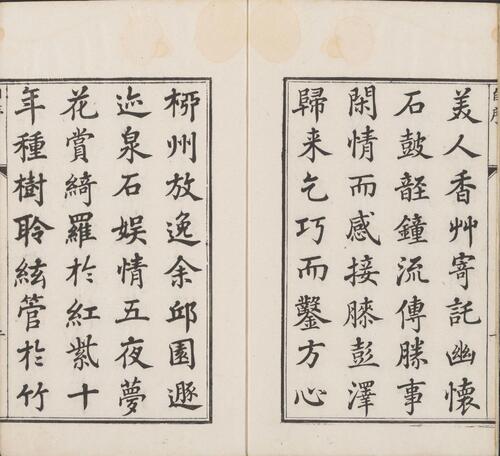 美人香艸寄託幽懷
石鼓鐘流傳勝事
閑情而感接膝彭澤
歸来乞巧而鑿方心
桺州放逸余邱園遯
迹泉石娱情五夜夢
花賞綺羅於紅紫十
年種樹聆絃管於竹